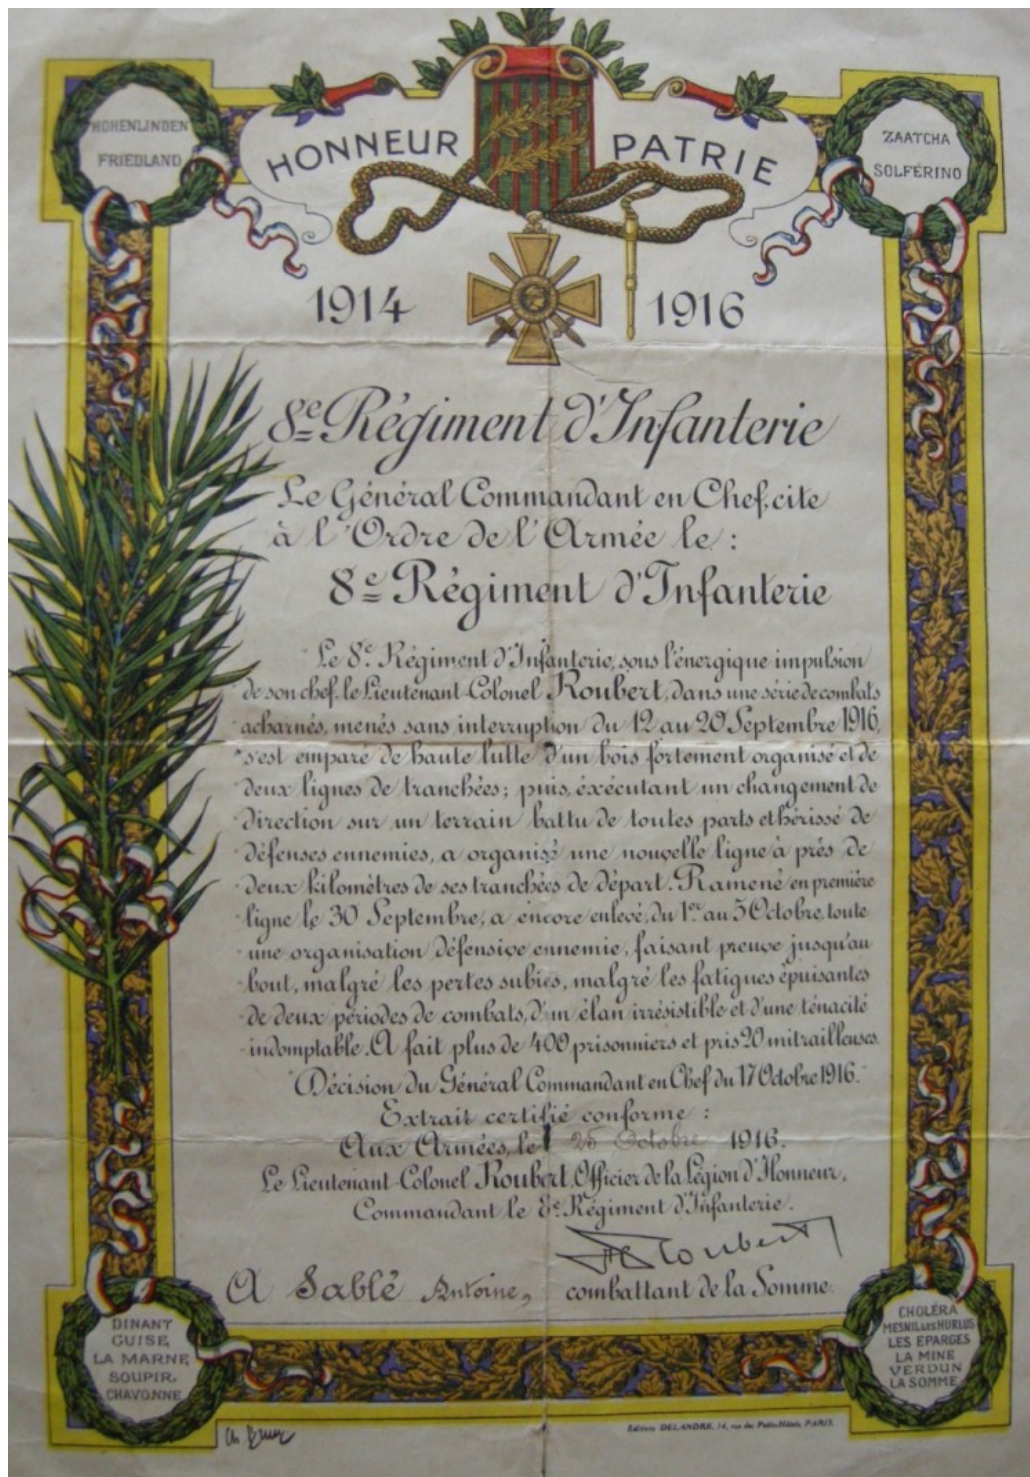 HOHENLINDEN
FRIEDLAND
HONNEUR PATRIE
ZAATCHA
SOLFÉRINO
1914 1916
8e Régiment d'Infanterie
Le Général Commandant en Chef, cite
à l'Ordre de l'Armée le :
8e Régiment d'Infanterie
Le 8e Régiment d'Infanterie, sous l'énergique impulsion
de son chef, le Lieutenant-Colonel Roubert, dans une série de combats
acharnés, menés sans interruption du 12 au 20 Septembre 1916,
s'est emparé de haute lutte d'un bois fortement organisé et de
deux lignes de tranchées; puis, éxécutant un changement de
direction sur un terrain battu de toutes parts et hérissé de
défenses ennemies, a organisé une nouvelle ligne à prés de
deux kilomètres de ses tranchées de départ. Ramené en première
ligne le 30 Septembre, a encore enlevé, du 1er au 5 Octobre, toute
une organisation défensive ennemie, faisant preuve jusqu'au
bout, malgré les pertes subies, malgré les fatigues épuisantes
de deux périodes de combats, d'un élan irrésistible et d'une ténacité
indomptable. A fait plus de 400 prisonniers et pris 20 mitrailleuses.
Décision du Général Commandant en Chef du 17 Octobre 1916.
Extrait certifié conforme :
Aux Armées, le 25 Octobre 1916.
Le Lieutenant-Colonel Roubert, Officier de la Légion d'Honneur,
Commandant le 8e Régiment d'Infanterie.
Roubert
A Sablé Antoine, combattant de la Somme.
DINANT
GUISE
LA MARNE
SOUPIR
CHAVONNE
CHOLÉRA
MESNIL LES HURLUS
LES EPARGES
LA MINE
VERDUN
LA SOMME
Editions DELANDRE, 14, rue des Petits-Hôtels, PARIS.